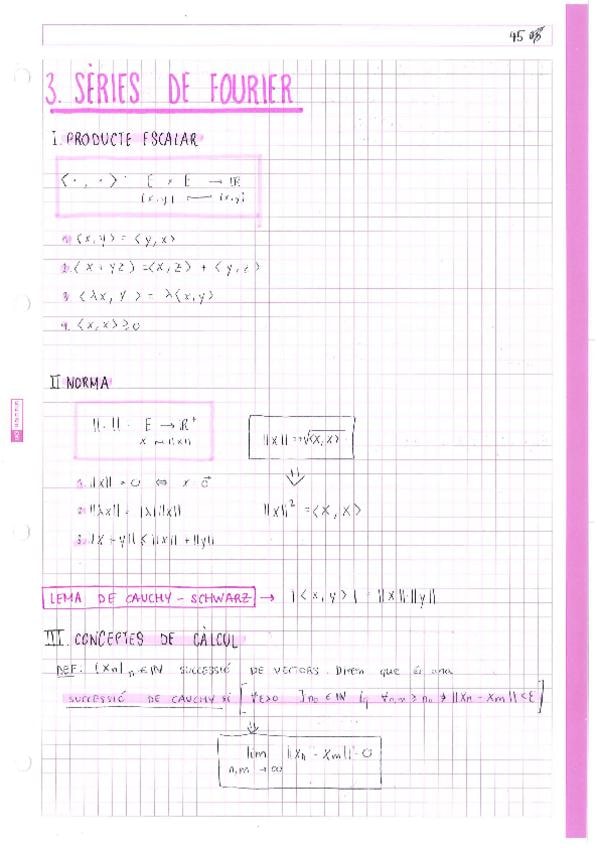 3. SÈRIES DE FOURIER
I. PRODUCTE ESCALAR
⟨·,·⟩: E × E → ℝ
(x,y) ⟼ ⟨x,y⟩
1. ⟨x,y⟩ = ⟨y,x⟩
2. ⟨x+y z⟩ = ⟨x,z⟩ + ⟨y,z⟩
3. ⟨λx,y⟩ = λ⟨x,y⟩
4. ⟨x,x⟩ ≥ 0
II NORMA
||·||: E → ℝ⁺
x ⟼ ||x||
||x|| = √⟨x,x⟩
1. ||x|| = 0 ⇔ x = 0⃗
2. ||λx|| = |λ| ||x||
||x||² = ⟨x,x⟩
3. ||x+y|| ≤ ||x|| + ||y||
LEMA DE CAUCHY-SCHWARZ → |⟨x,y⟩| = ||x||·||y||
III. CONCEPTES DE CÀLCUL
DEF. (Xn)n∈ℕ SUCCESSIÓ DE VECTORS. Direm que és una
SUCCESSIÓ DE CAUCHY si [∀ε>0 ∃n₀∈ℕ tq ∀n,m > n₀ ⇒ ||Xn - Xm|| < ε]
lim ||Xn - Xm|| = 0
n,m → ∞